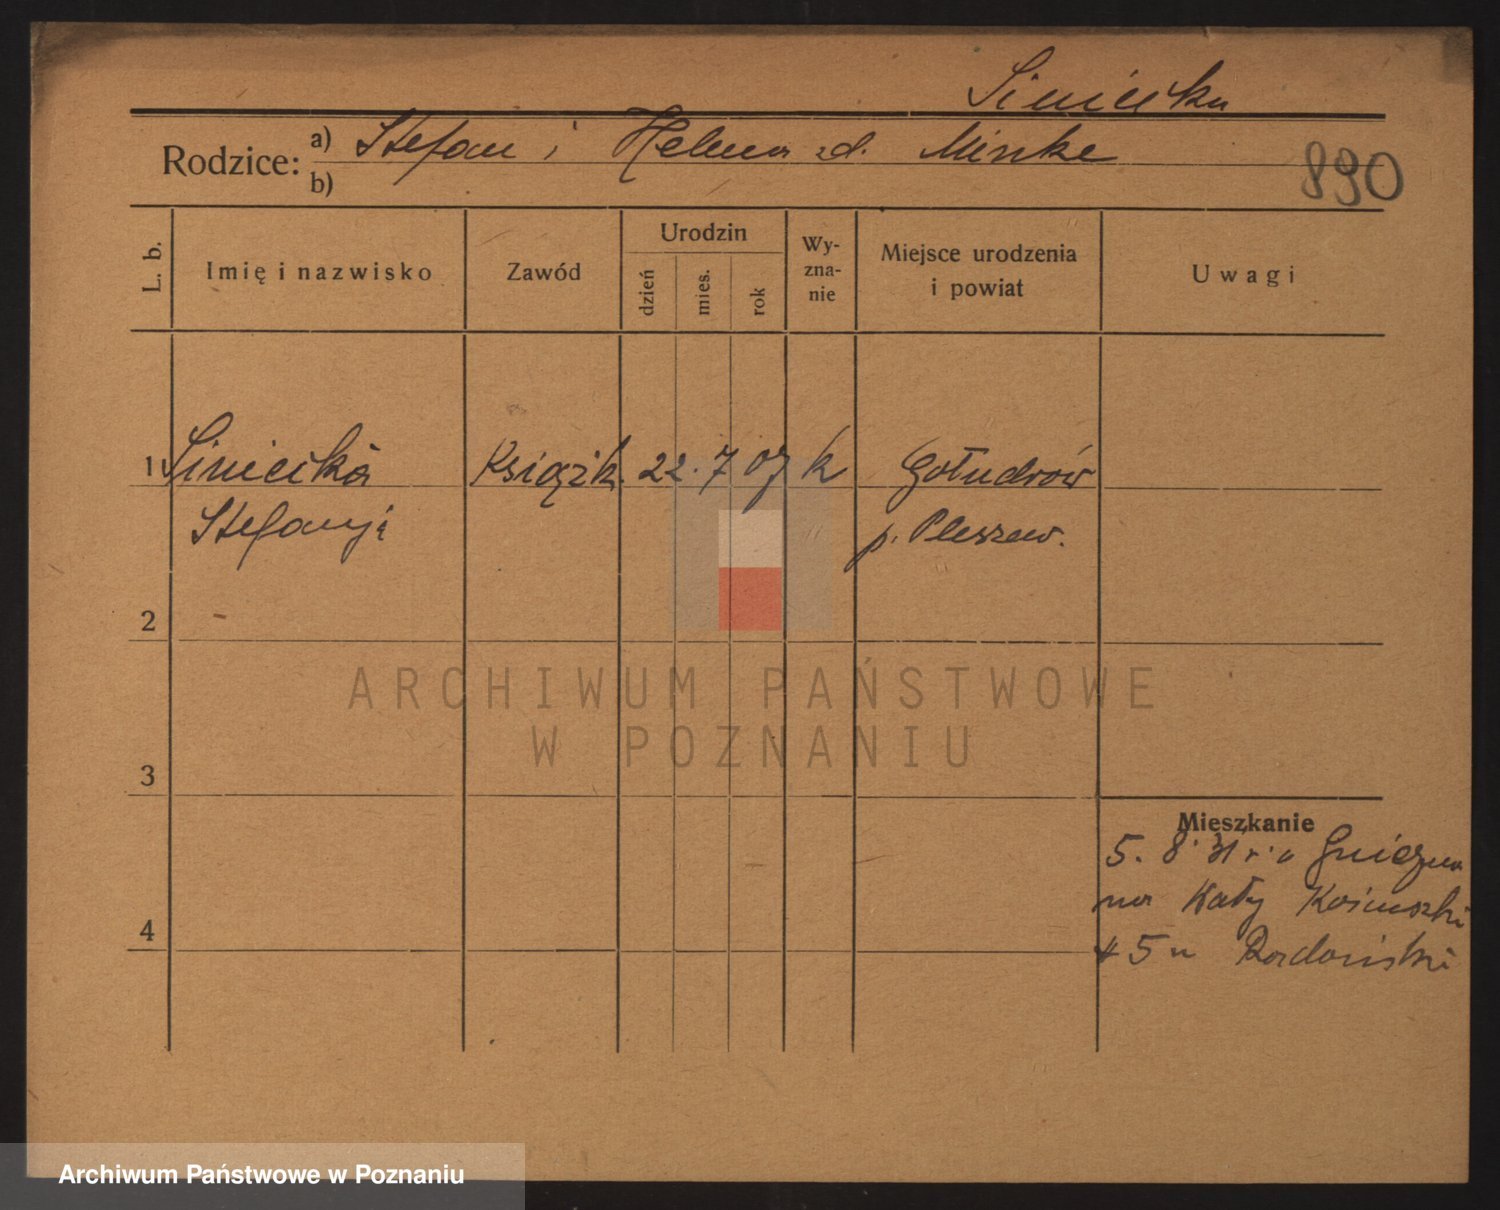 Siniecka
Rodzice: a) Stefan i Helena zd. Minke
b)
890
L. b.
Imię i nazwisko
Zawód
Urodzin
dzień
mies.
rok
Wy-
zna-
nie
Miejsce urodzenia
i powiat
Uwagi
1 Siniecka Książk. 22. 7 07 k
Stefanja p. Pleszew.
2
3
4
Mieszkanie
5. 8. 31 r. z Gniezna
na
5
ARCHIWUM PAŃSTWOWE
W POZNANIU
Archiwum Państwowe w Poznaniu